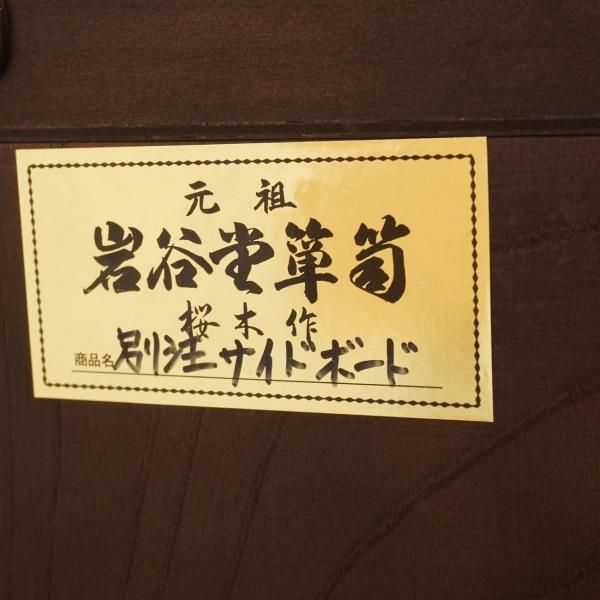 元祖
岩谷堂箪笥
桜木作
商品名 別注サイドボード